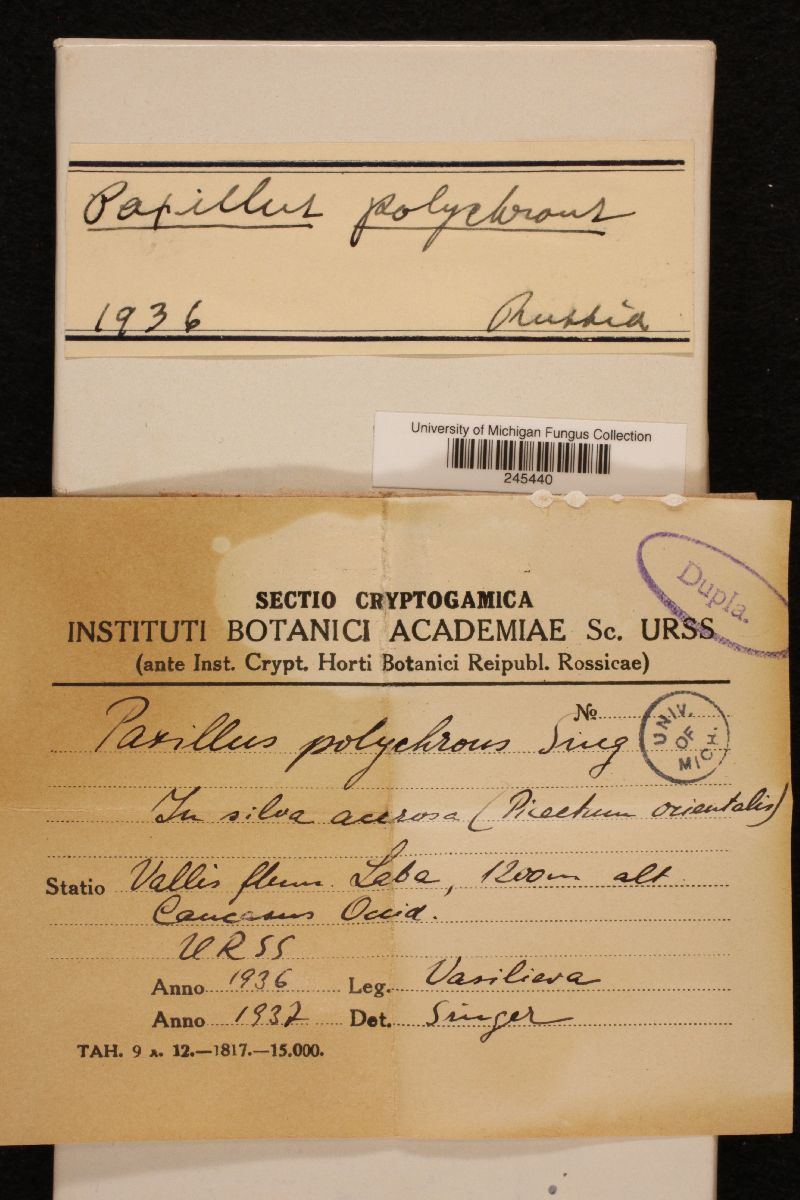 Paxillus polychrous
1936 Russia
University of Michigan Fungus Collection
245440
Dupla.
SECTIO CRYPTOGAMICA
INSTITUTI BOTANICI ACADEMIAE Sc. URSS
(ante Inst. Crypt. Horti Botanici Reipubl. Rossicae)
№
Paxillus polychrous Sing
UNIV. OF MICH.
In silva acerosa (Piceetum orientalis)
Statio Vallis flum. Laba, 1200m alt
Caucasus Occid.
URSS
Anno 1936 Leg. Vasilieva
Anno 1937 Det. Singer
ТАН. 9 л. 12.—1817.—15.000.